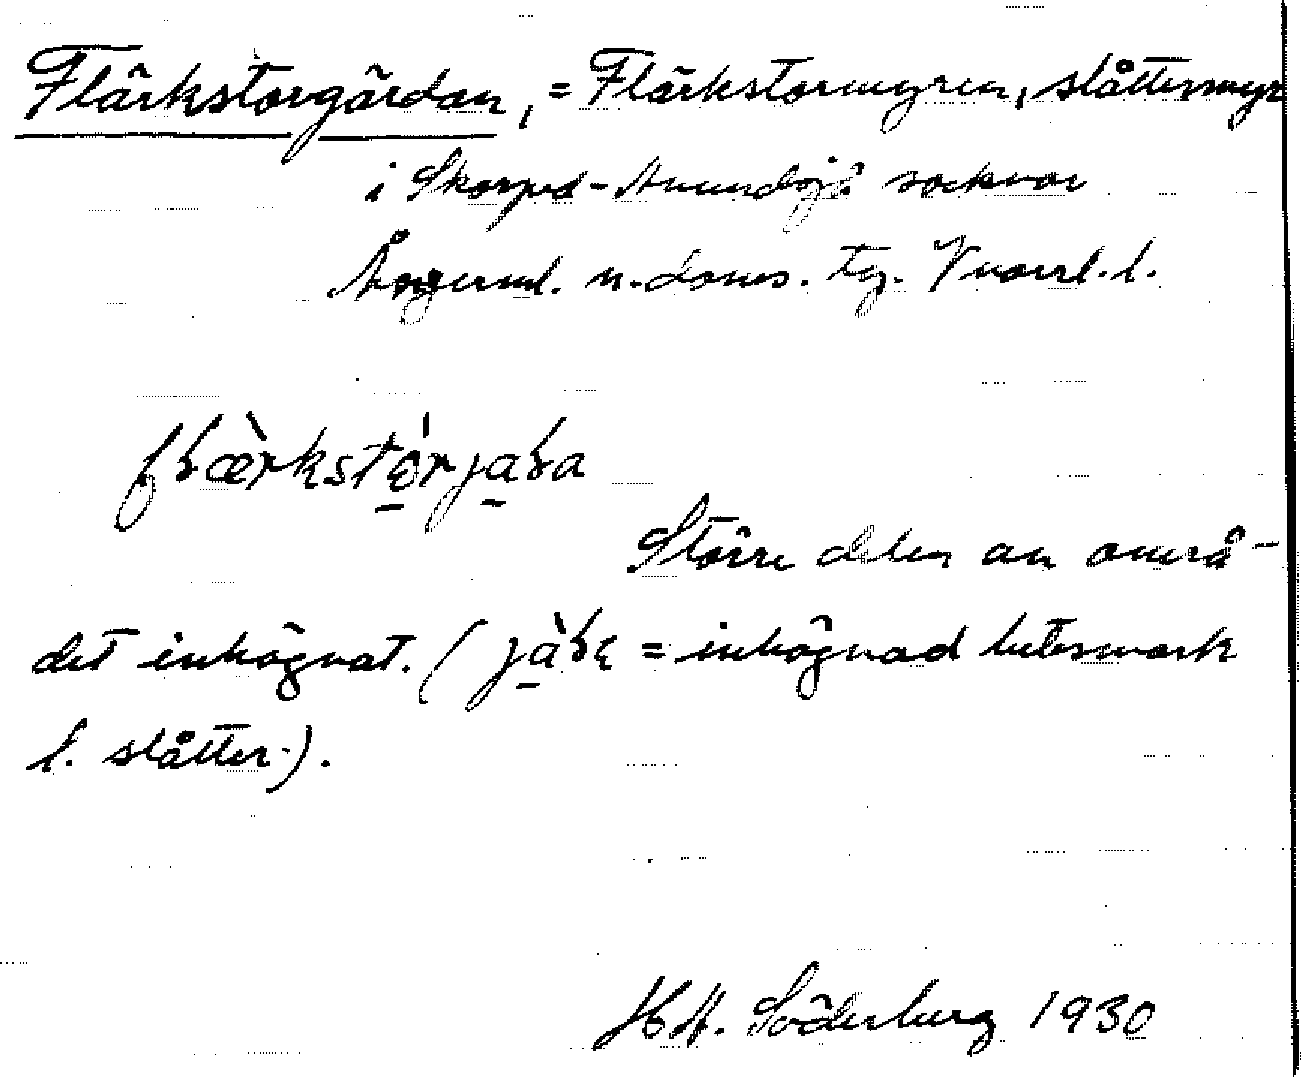 Flärkstorgärdan, = Flärkstormyren, slåttermyr
i Skorped-Anundsjö socknar
Ångerml. n. doms. tg. Vnorrl. l.
Större delen av områ-
det inhägnat. ( = inhägnad betesmark
l. slåtter.).
H A. Söderberg 1930